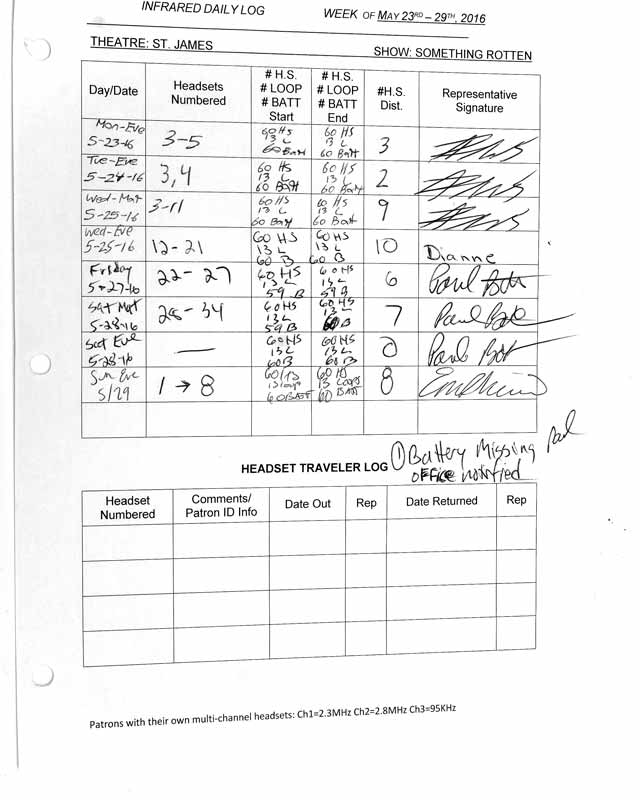 INFRARED DAILY LOG WEEK OF MAY 23RD – 29TH, 2016
THEATRE: ST. JAMES SHOW: SOMETHING ROTTEN
Day/Date Headsets Numbered # H.S. # LOOP # BATT Start # H.S. # LOOP # BATT End #H.S. Dist. Representative Signature
Mon-Eve 5-23-16 3-5 60 HS 13 L 60 Batt 60 HS 13 L 60 Batt 3
Tue-Eve 5-24-16 3,4 60 HS 13 L 60 Batt 60 HS 13 L 60 Batt 2
Wed-Mat 5-25-16 3-11 60 HS 13 L 60 Batt 60 HS 13 L 60 Batt 9
Wed-Eve 5-25-16 12-21 60 HS 13 L 60 B 60 HS 13 L 60 B 10 Dianne
Friday 5-27-16 22-27 60 HS 13 L 59 B 60 HS 13 L 59 B 6 Paul
Sat Mat 5-28-16 28-34 60 HS 13 L 59 B 60 HS 13 L 60 B 7 Paul
Sat Eve 5-28-16 — 60 HS 13 L 60 B 60 HS 13 L 60 B 0 Paul
Sun Eve 5/29 1 → 8 60 HS 13 Loops 60 BATT 60 HS 13 Loops 60 BATT 8
① Battery Missing Paul
OFFICE notified
HEADSET TRAVELER LOG
Headset Numbered Comments/ Patron ID Info Date Out Rep Date Returned Rep
Patrons with their own multi-channel headsets: Ch1=2.3MHz Ch2=2.8MHz Ch3=95KHz